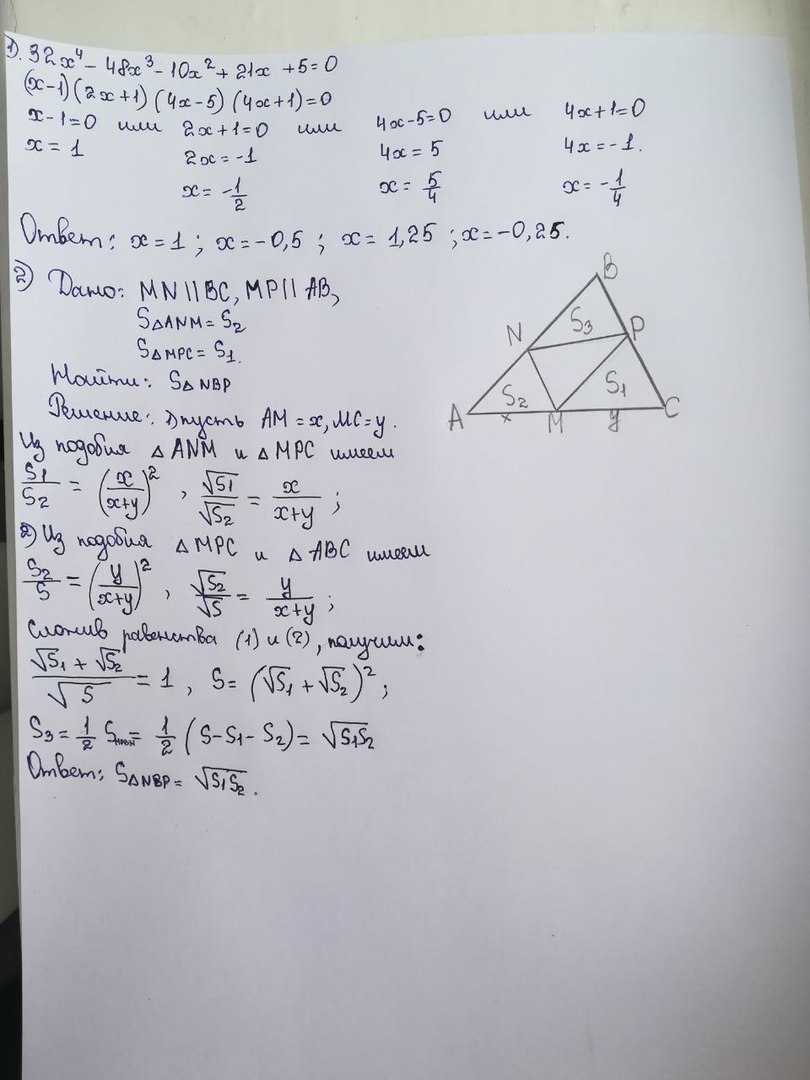 1). 32x⁴ - 48x³ - 10x² + 21x + 5 = 0
(x-1)(2x+1)(4x-5)(4x+1)=0
x-1=0 или 2x+1=0 или 4x-5=0 или 4x+1=0
x = 1 2x = -1 4x = 5 4x = -1.
x = -1/2 x = 5/4 x = -1/4
Ответ: x = 1 ; x = -0,5 ; x = 1,25 ; x = -0,25.
2) Дано: MN || BC, MP || AB,
S△ANM = S₂
S△MPC = S₁.
Найти: S△NBP
Решение: 1) пусть AM = x, MC = y.
Из подобия △ANM и △MPC имеем
S1/S₂ = (x/(x+y))², √S1/√S₂ = x/(x+y) ;
2) Из подобия △MPC и △ABC имеем
S₂/S = (y/(x+y))², √S₂/√S = y/(x+y) ;
Сложив равенства (1) и (2), получим:
(√S₁ + √S₂)/√S = 1 , S = (√S₁ + √S₂)² ;
S₃ = 1/2 S = 1/2 (S - S₁ - S₂) = √S₁S₂
Ответ: S△NBP = √S₁S₂ .
B
N S₃ P
S₂ S₁
A x M y C